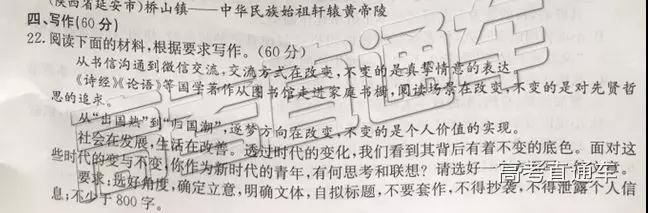 (陕西省延安市)桥山镇——中华民族始祖轩辕黄帝陵
四、写作(60分)
22.阅读下面的材料,根据要求写作。(60分)
从书信沟通到微信交流,交流方式在改变,不变的是真挚情意的表达。
《诗经》《论语》等国学著作从图书馆走进家庭书橱,阅读场景在改变,不变的是对先贤哲
思的追求。
从“出国热”到“归国潮”,逐梦方向在改变,不变的是个人价值的实现。
社会在发展,生活在改善。透过时代的变化,我们看到其背后有着不变的底色。面对这
些时代的变与不变,你作为新时代的青年,有何思考和联想?请选好一
要求:选好角度,确定立意,明确文体,自拟标题,不要套作,不得抄袭,不得泄露个人信
息;不少于800字。
高考直通车
高考直通车